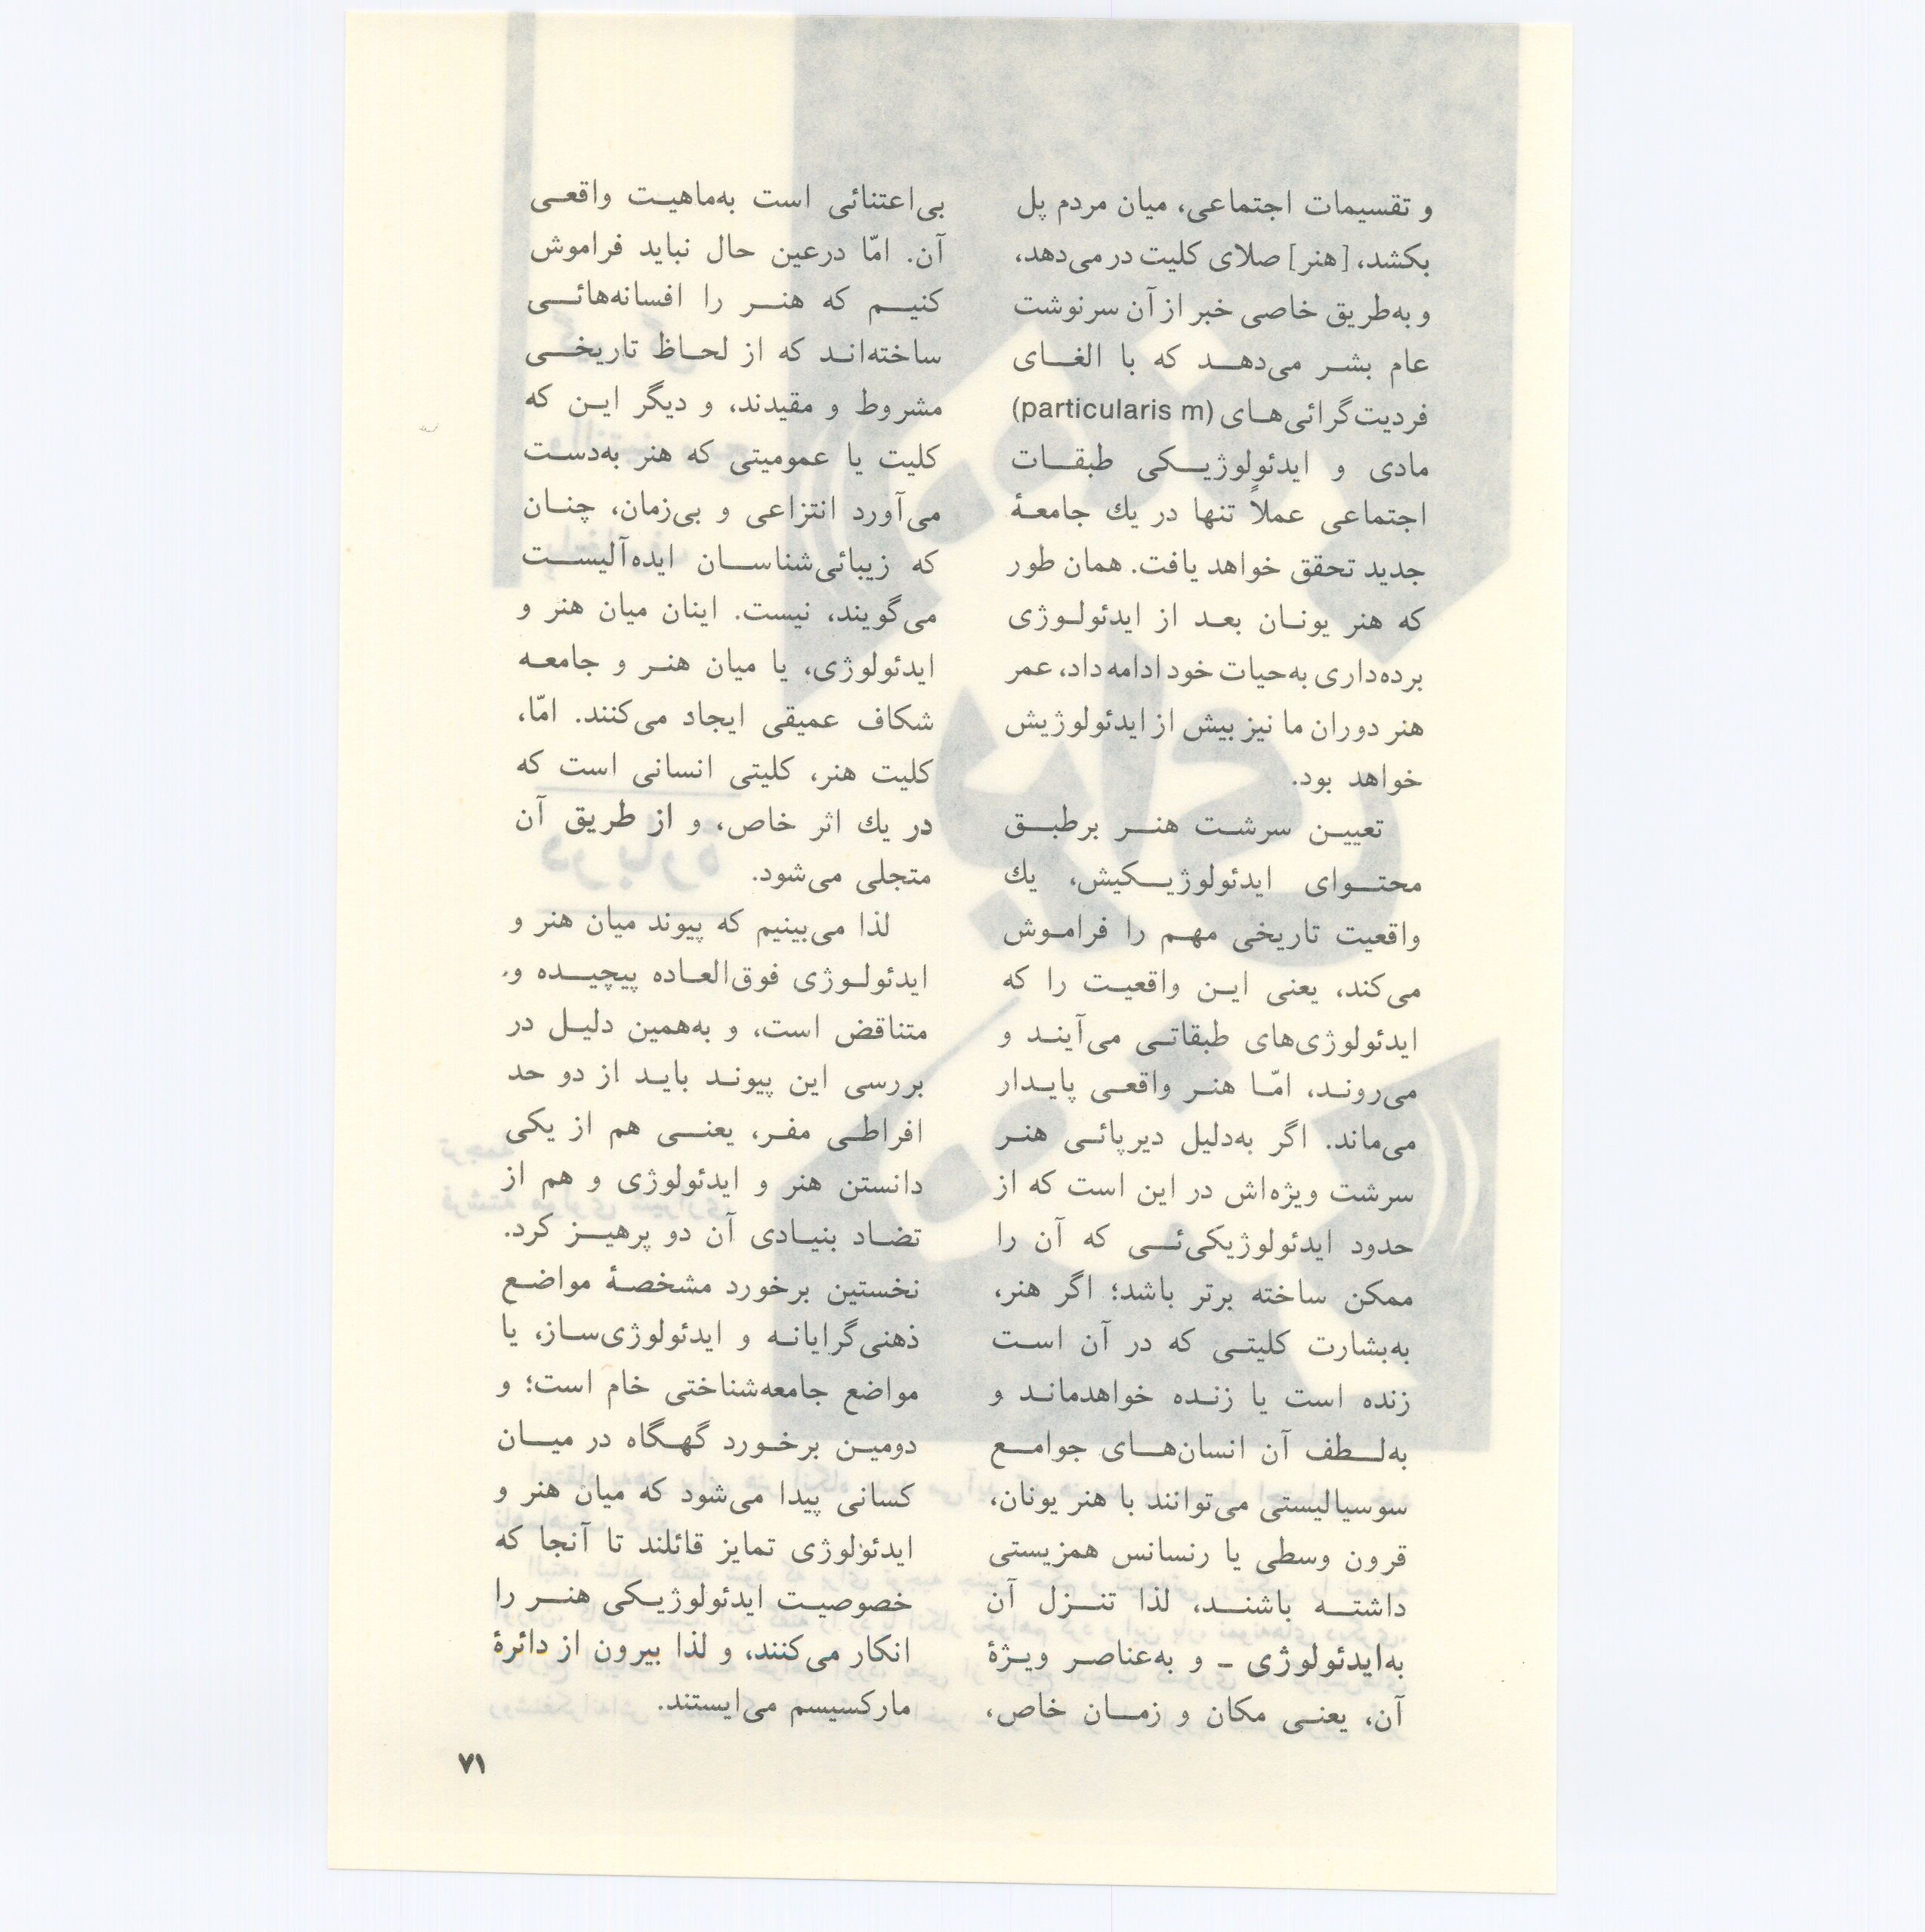 و تقسیمات اجتماعی، میان مردم پل
بکشد، [هنر] صلای کلیت در می‌دهد،
و به‌طریق خاصی خبر از آن سرنوشت
عام بشر می‌دهد که با الغای
فردیت‌گرائی‌های (particularis m)
مادی و ایدئولوژیکی طبقات
اجتماعی عملاً تنها در یك جامعهٔ
جدید تحقق خواهد یافت. همان طور
که هنر یونان بعد از ایدئولوژی
برده‌داری به‌حیات خود ادامه داد، عمر
هنر دوران ما نیز بیش از ایدئولوژیش
خواهد بود.
تعیین سرشت هنر برطبق
محتوای ایدئولوژیکیش، یك
واقعیت تاریخی مهم را فراموش
می‌کند، یعنی این واقعیت را که
ایدئولوژی‌های طبقاتی می‌آیند و
می‌روند، امّا هنر واقعی پایدار
می‌ماند. اگر به‌دلیل دیرپائی هنر
سرشت ویژه‌اش در این است که از
حدود ایدئولوژیکی‌ئی که آن را
ممکن ساخته برتر باشد؛ اگر هنر،
به‌بشارت کلیتی که در آن است
زنده است یا زنده خواهدماند و
به‌لطف آن انسان‌های جوامع
سوسیالیستی می‌توانند با هنر یونان،
قرون وسطی یا رنسانس همزیستی
داشته باشند، لذا تنزل آن
به‌ایدئولوژی ـ و به‌عناصر ویژهٔ
آن، یعنی مکان و زمان خاص،
بی‌اعتنائی است به‌ماهیت واقعی
آن. امّا درعین حال نباید فراموش
کنیم که هنر را افسانه‌هائی
ساخته‌اند که از لحاظ تاریخی
مشروط و مقیدند، و دیگر این که
کلیت یا عمومیتی که هنر به‌دست
می‌آورد انتزاعی و بی‌زمان، چنان
که زیبائی‌شناسان ایده‌آلیست
می‌گویند، نیست. اینان میان هنر و
ایدئولوژی، یا میان هنر و جامعه
شکاف عمیقی ایجاد می‌کنند. امّا،
کلیت هنر، کلیتی انسانی است که
در یك اثر خاص، و از طریق آن
متجلی می‌شود.
لذا می‌بینیم که پیوند میان هنر و
ایدئولوژی فوق‌العاده پیچیده و
متناقض است، و به‌همین دلیل در
بررسی این پیوند باید از دو حد
افراطی مفر، یعنی هم از یکی
دانستن هنر و ایدئولوژی و هم از
تضاد بنیادی آن دو پرهیز کرد.
نخستین برخورد مشخصهٔ مواضع
ذهنی‌گرایانه و ایدئولوژی‌ساز، یا
مواضع جامعه‌شناختی خام است؛ و
دومین برخورد گهگاه در میان
کسانی پیدا می‌شود که میان هنر و
ایدئولوژی تمایز قائلند تا آنجا که
خصوصیت ایدئولوژیکی هنر را
انکار می‌کنند، و لذا بیرون از دائرهٔ
مارکسیسم می‌ایستند.
۷۱